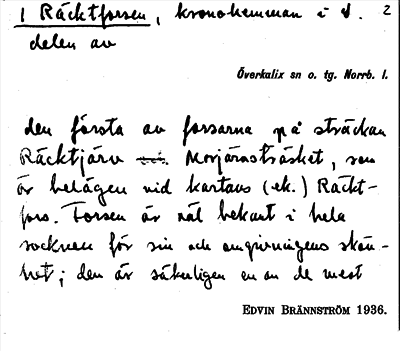 1 Räcktforsen, kronohemman i d. 2
delen av
Överkalix sn o. tg. Norrb. l.
den första av forsarna på sträckan
Räcktjärv - Morjärnsträsket, som
är belägen vid kartans (ek.) Räckt-
fors. Forsen är väl bekant i hela
socknen för sin och omgivningens skön-
het; den är säkerligen en av de mest
EDVIN BRÄNNSTRÖM 1936.